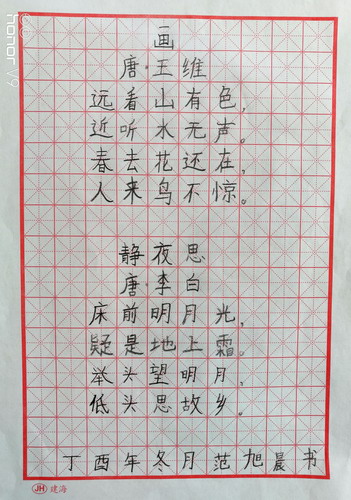 honor V9
画
唐·王维
远看山有色,
近听水无声。
春去花还在,
人来鸟不惊。
静夜思
唐·李白
床前明月光,
疑是地上霜。
举头望明月,
低头思故乡。
丁酉年冬月范旭晨书
JH 建海